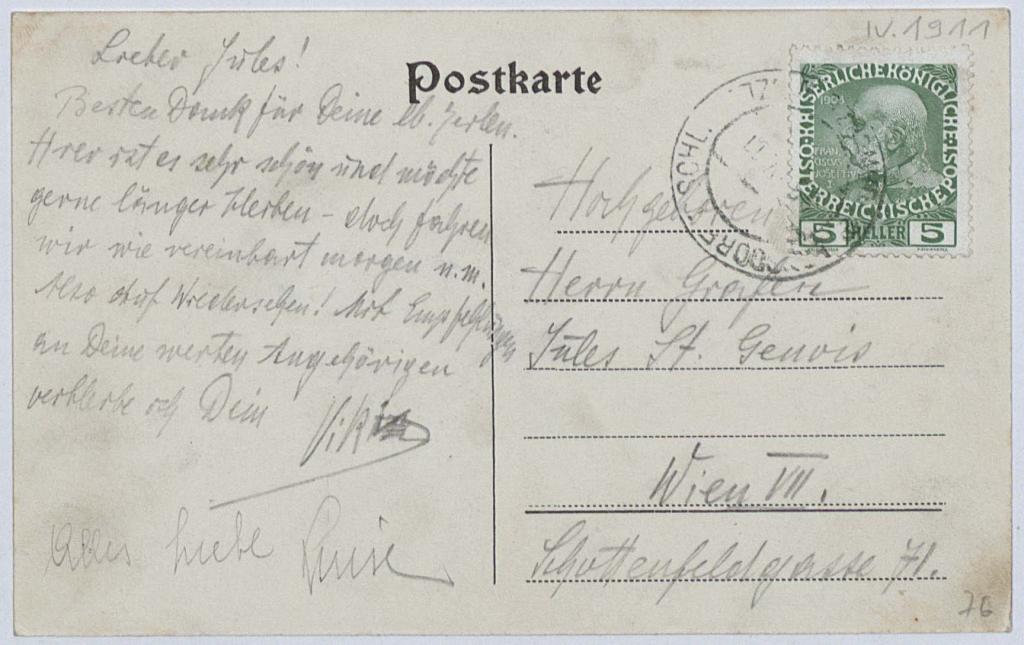 IV. 1911
Postkarte
Lieber Jules!
Besten Dank für Deine lb. Zeilen.
Hier ist es sehr schön und möchte
gerne länger bleiben - doch fahren
wir wie vereinbart morgen n.m.
Also auf Wiedersehen! Mit Empfehlungen
an Deine werten Angehörigen
verbleibe ich Dein
Alles Liebe Luise
Hochgeboren
Herrn Grafen
Jules St. Genois
Wien VII.
Schottenfeldgasse 71.
76
KAISERLICHE KÖNIGLICHE ÖSTERREICHISCHE POST
1908
FRAN
CISCVS
JOSEPHVS
I
5 HELLER 5
DORF SCHL.